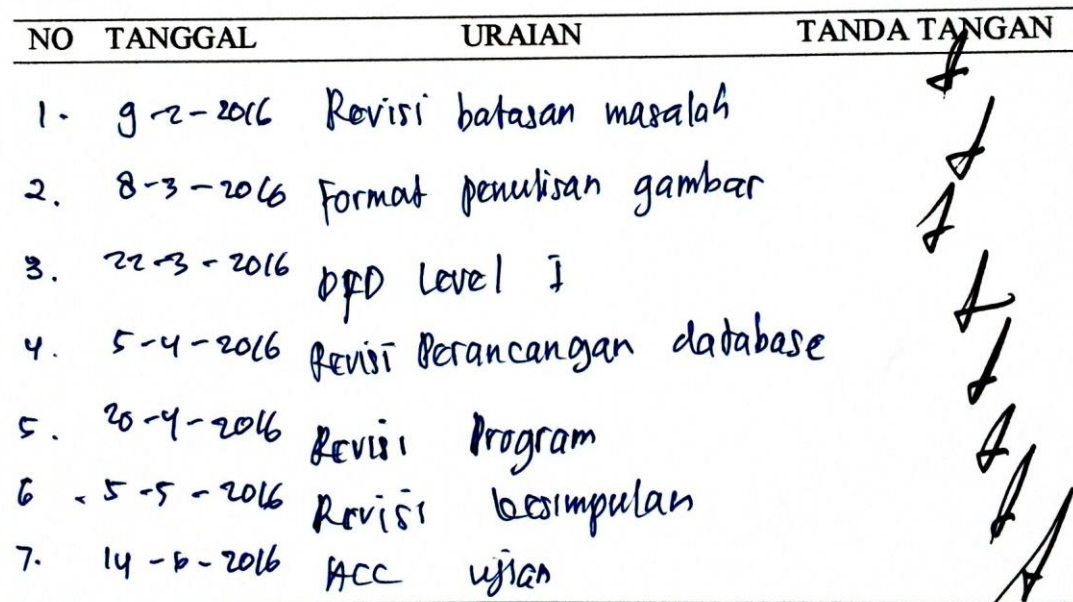 NO TANGGAL URAIAN TANDA TANGAN
1. 9-2-2016 Revisi batasan masalah
2. 8-3-2016 Format penulisan gambar
3. 22-3-2016 DFD Level I
4. 5-4-2016 Revisi Perancangan database
5. 20-4-2016 Revisi Program
6. 5-5-2016 Revisi kesimpulan
7. 14-6-2016 ACC ujian